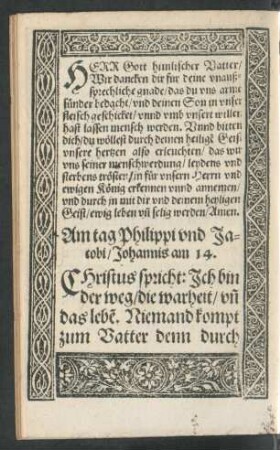 HERR Gott himlischer Vatter/
Wir dancken dir für deine vnauß⸗
sprechliche gnade/das du vns arme
sünder bedacht/vnd deinen Son in vnser
fleisch geschicket/vnnd vmb vnsert willen
hast lassen mensch werden. Vnnd bitten
dich/du wöllest durch deinen heiligē Geist
vnsere hertzen also erleuchten/das wir
vns seiner menschwerdung/leydens vnd
sterbens trösten/in für vnsern Herrn vnd
ewigen König erkennen vnnd annemen/
vnd durch jn mit dir vnd deinem heyligen
Geist/ewig leben vñ selig werden/Amen.
Am tag Philippi vnd Ja⸗
cobi/Johannis am 14.
CHristus spricht: Ich bin
der weg/die warheit/vñ
das lebē. Niemand kompt
zum Vatter denn durch